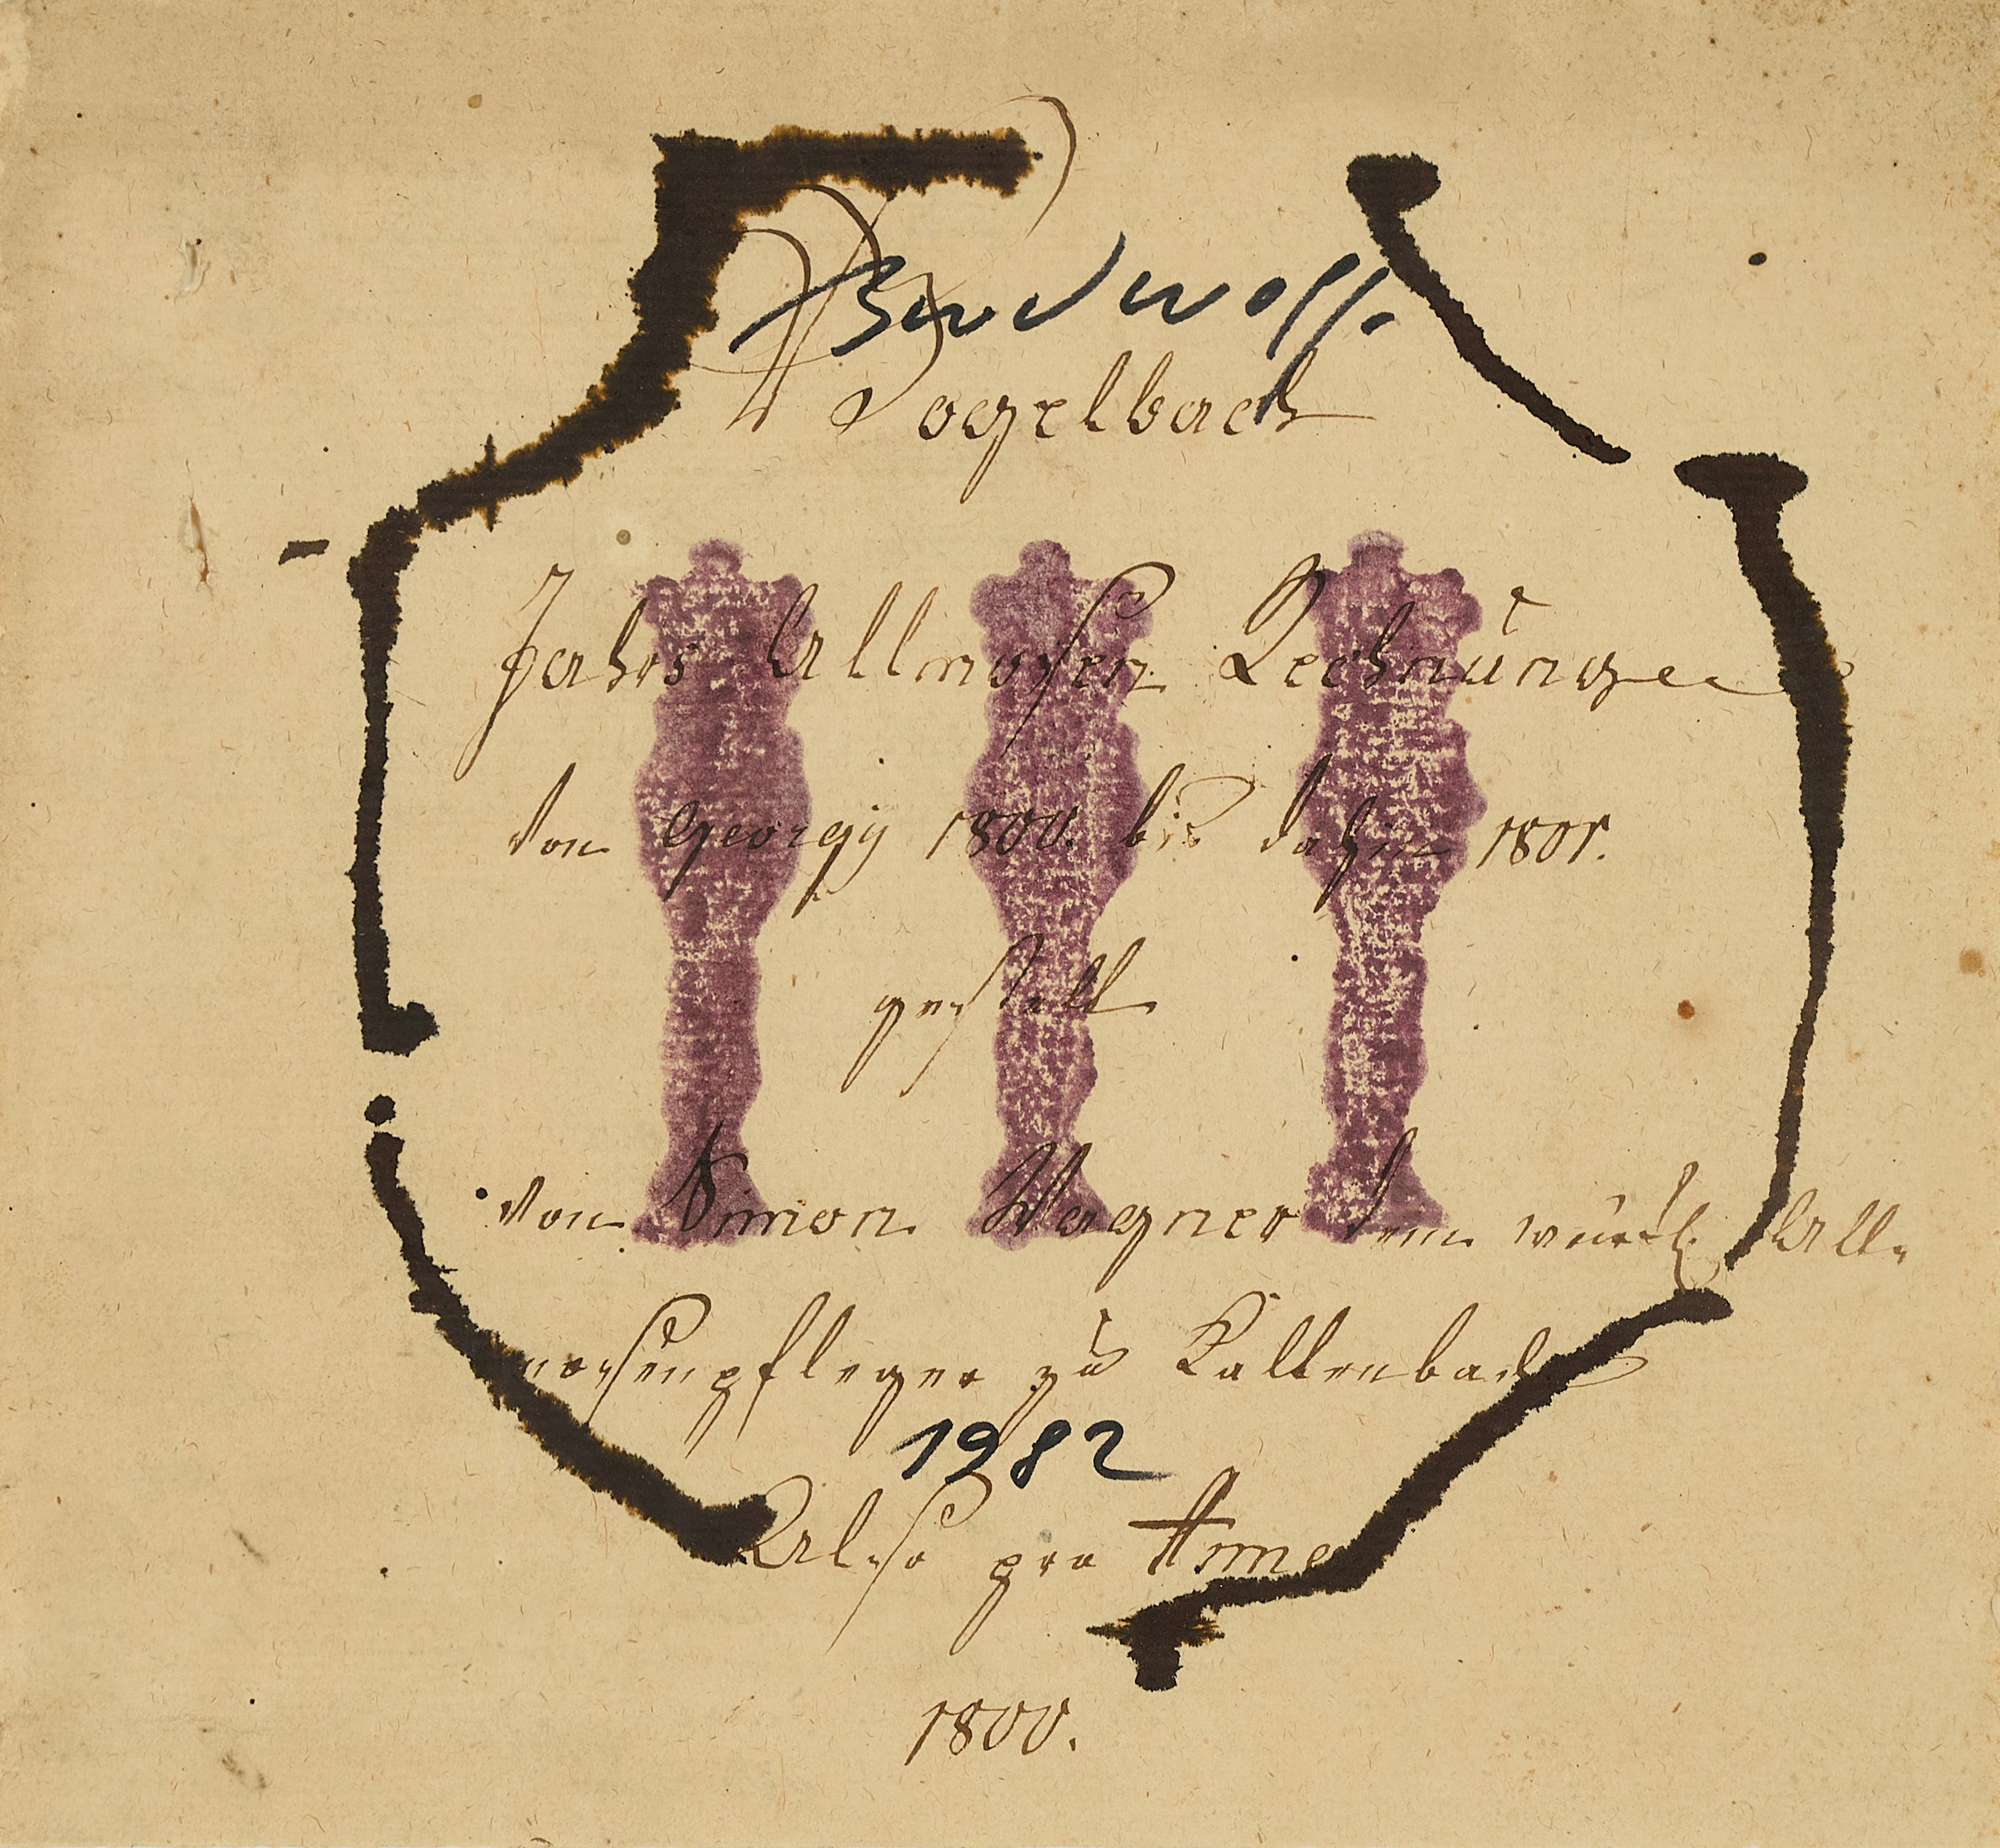 Vogelbach
Jahrs Allmosen Rechnung
von Georgij 1800. bis dahin 1801.
gestellt
von Simon Wagner dem All-
mosenpfleger zu Kaltenbach
1982
Also pro Anno
1800.